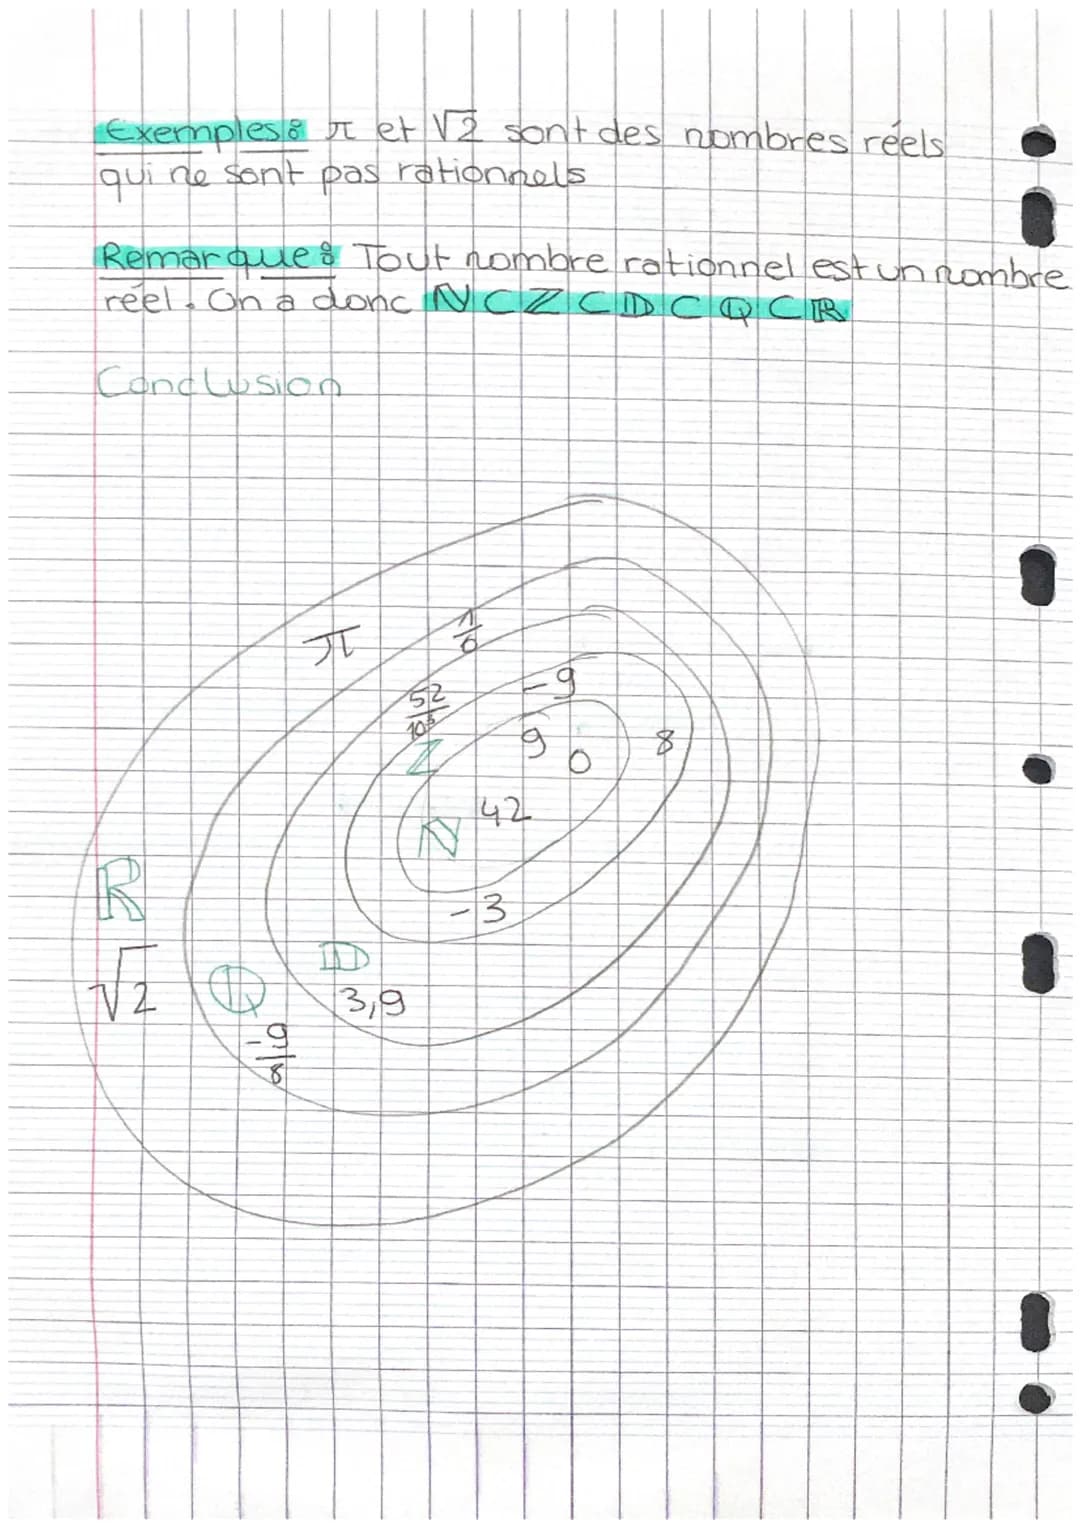 Exemples : π et √2 sont des nombres réels
qui ne sont pas rationnels
Remarque : Tout nombre rationnel est un nombre
réel. On a donc ℕ ⊂ ℤ ⊂ 𝔻 ⊂ ℚ ⊂ ℝ
Conclusion
π
52/10³
-9
ℤ
9
0
8
42
ℕ
-3
ℝ
√2
ℚ
𝔻
3,9
-9/8